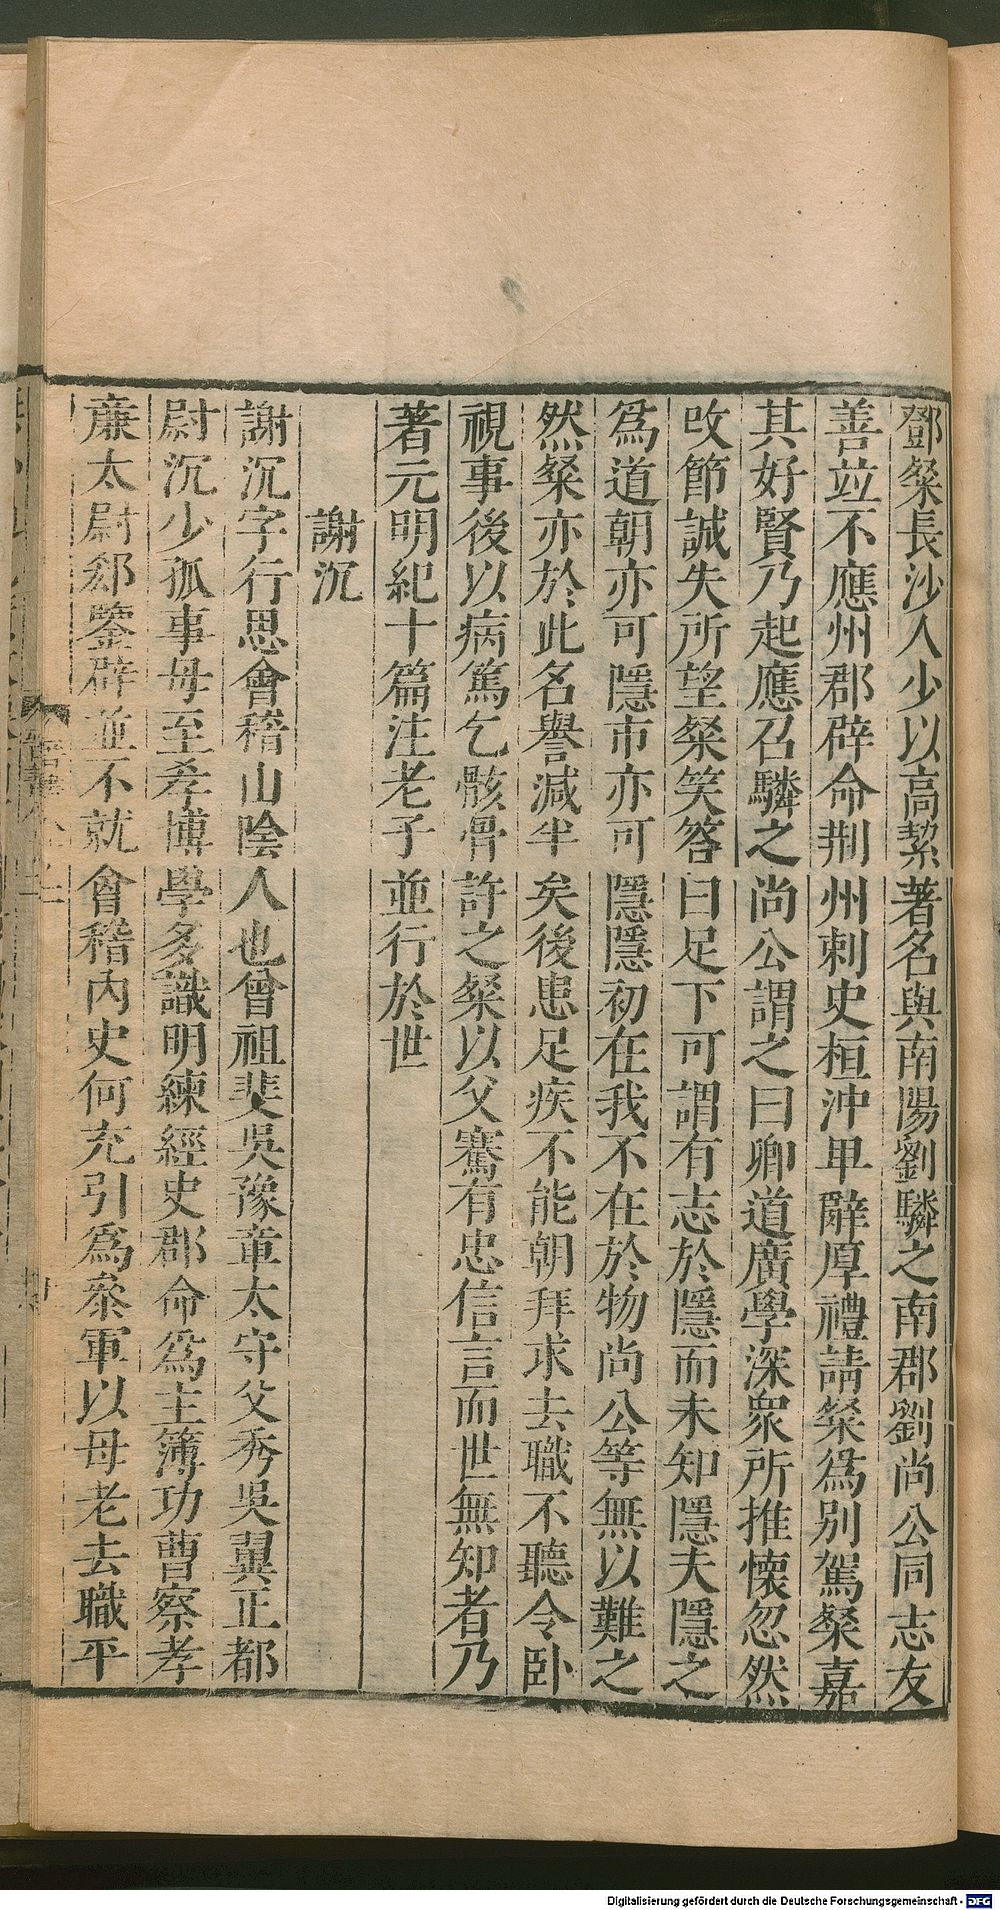 鄧粲長沙人少以高絜著名與南陽劉驎之南郡劉尚公同志友
善竝不應州郡辟命荆州刺史桓沖卑辭厚禮請粲爲別駕粲嘉
其好賢乃起應召驎之尚公謂之曰卿道廣學深衆所推懷忽然
改節誠失所望粲笑答曰足下可謂有志於隱而未知隱夫隱之
爲道朝亦可隱市亦可隱隱初在我不在於物尚公等無以難之
然粲亦於此名譽減半矣後患足疾不能朝拜求去職不聽令卧
視事後以病篤乞骸骨許之粲以父騫有忠信言而世無知者乃
著元明紀十篇注老子並行於世
謝沉
謝沉字行思會稽山陰人也曾祖斐吳豫章太守父秀吳翼正都
尉沉少孤事母至孝博學多識明練經史郡命爲主簿功曹察孝
廉太尉郄鑒辟並不就會稽內史何充引爲叅軍以母老去職平
Digitalisierung gefördert durch die Deutsche Forschungsgemeinschaft - DFG